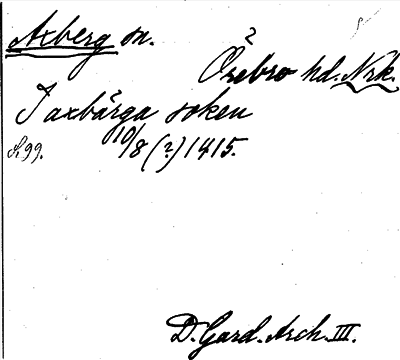 Axberg sn.
2
Örebro hd. Nrk.
I axbärga soken
10/8 (?) 1415.
D. Gard. Arch. III.